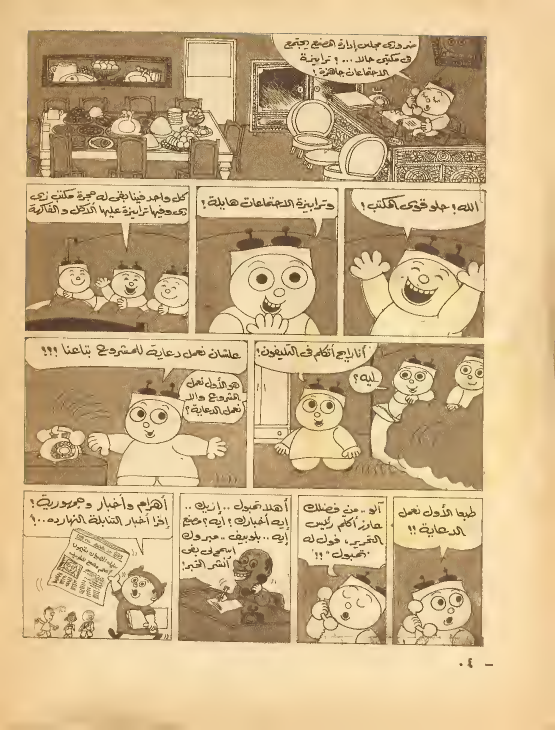 ضروري مجلس إدارة المصنع يجتمع
في مكتبي حالا...! ترابيزة
الاجتماعات جاهزة!
الله! حلو قوى المكتب!
وترابيزة الاجتماعات هايلة!
كل واحد فينا يبقى له حجرة مكتب زي
دي وفيها ترابيزة عليها الأكل والفاكهة
أنا رايح أتكلم في التليفون!
ليه؟
علشان نعمل دعاية للمشروع بتاعنا!!!
هو الأول نعمل
المشروع والا
نعمل الدعاية؟
طبعا الأول نعمل
الدعاية!!
ألو.. من فضلك
عايز أكلم رئيس
التحرير، قول له
"تمبول"!!
أهلا تمبول.. إزيك..
إيه أخبارك؟ إيه؟ مصنع
إيه.. بلوبيف.. مبروك
اسمحلى بقى
أنشر الخبر!
أهرام وأخبار وجمهورية؟
إقرا أخبار التنابلة النهارده..!
- ٤٠